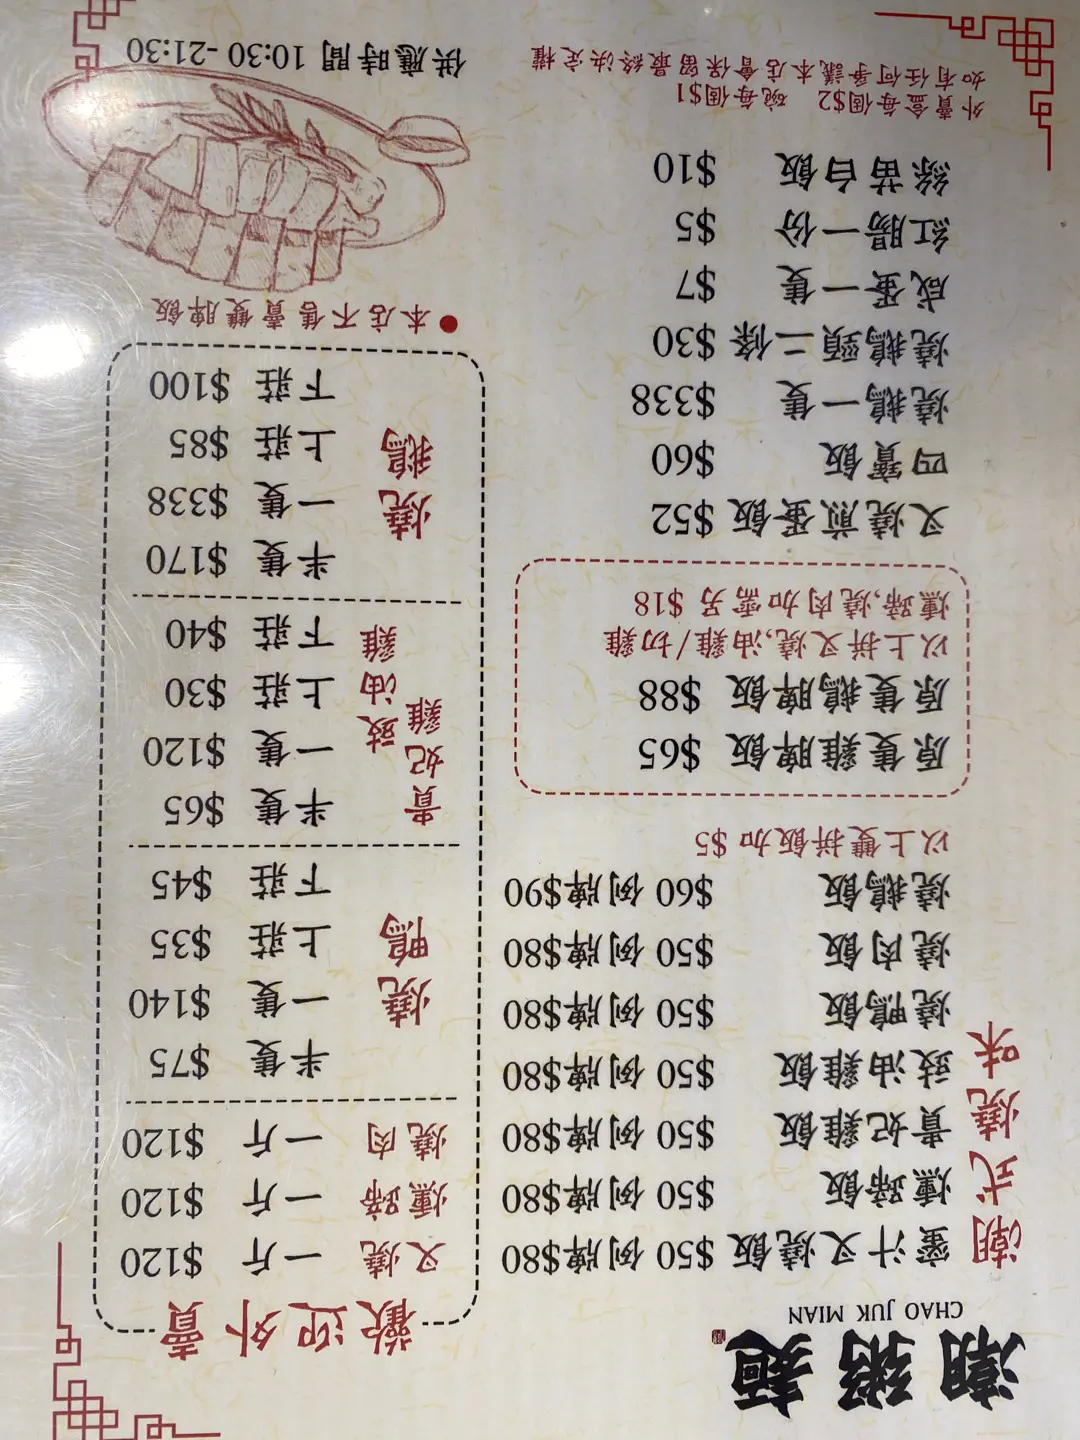 潮粥麵
CHAO JUK MIAN
潮式燒味
蜜汁叉燒飯 $50 例牌$80
燻蹄飯 $50 例牌$80
貴妃雞飯 $50 例牌$80
豉油雞飯 $50 例牌$80
燒鴨飯 $50 例牌$80
燒肉飯 $50 例牌$80
燒鵝飯 $60 例牌$90
以上雙拼飯加 $5
原隻雞脾飯 $65
原隻鵝脾飯 $88
以上拼叉燒,油雞/切雞
燻蹄,燒肉加需另 $18
叉燒煎蛋飯 $52
四寶飯 $60
燒鵝一隻 $338
燒鵝頸二條 $30
咸蛋一隻 $7
紅腸一份 $5
絲苗白飯 $10
外賣盒每個$2 碗每個$1
如有任何爭議本店會保留最終決定權
歡迎外賣
叉燒 一斤 $120
燻蹄 一斤 $120
燒肉 一斤 $120
燒鴨
半隻 $75
一隻 $140
上莊 $35
下莊 $45
貴妃雞
豉油雞
半隻 $65
一隻 $120
上莊 $30
下莊 $40
燒鵝
半隻 $170
一隻 $338
上莊 $85
下莊 $100
本店不售賣雙脾飯
供應時間 10:30-21:30